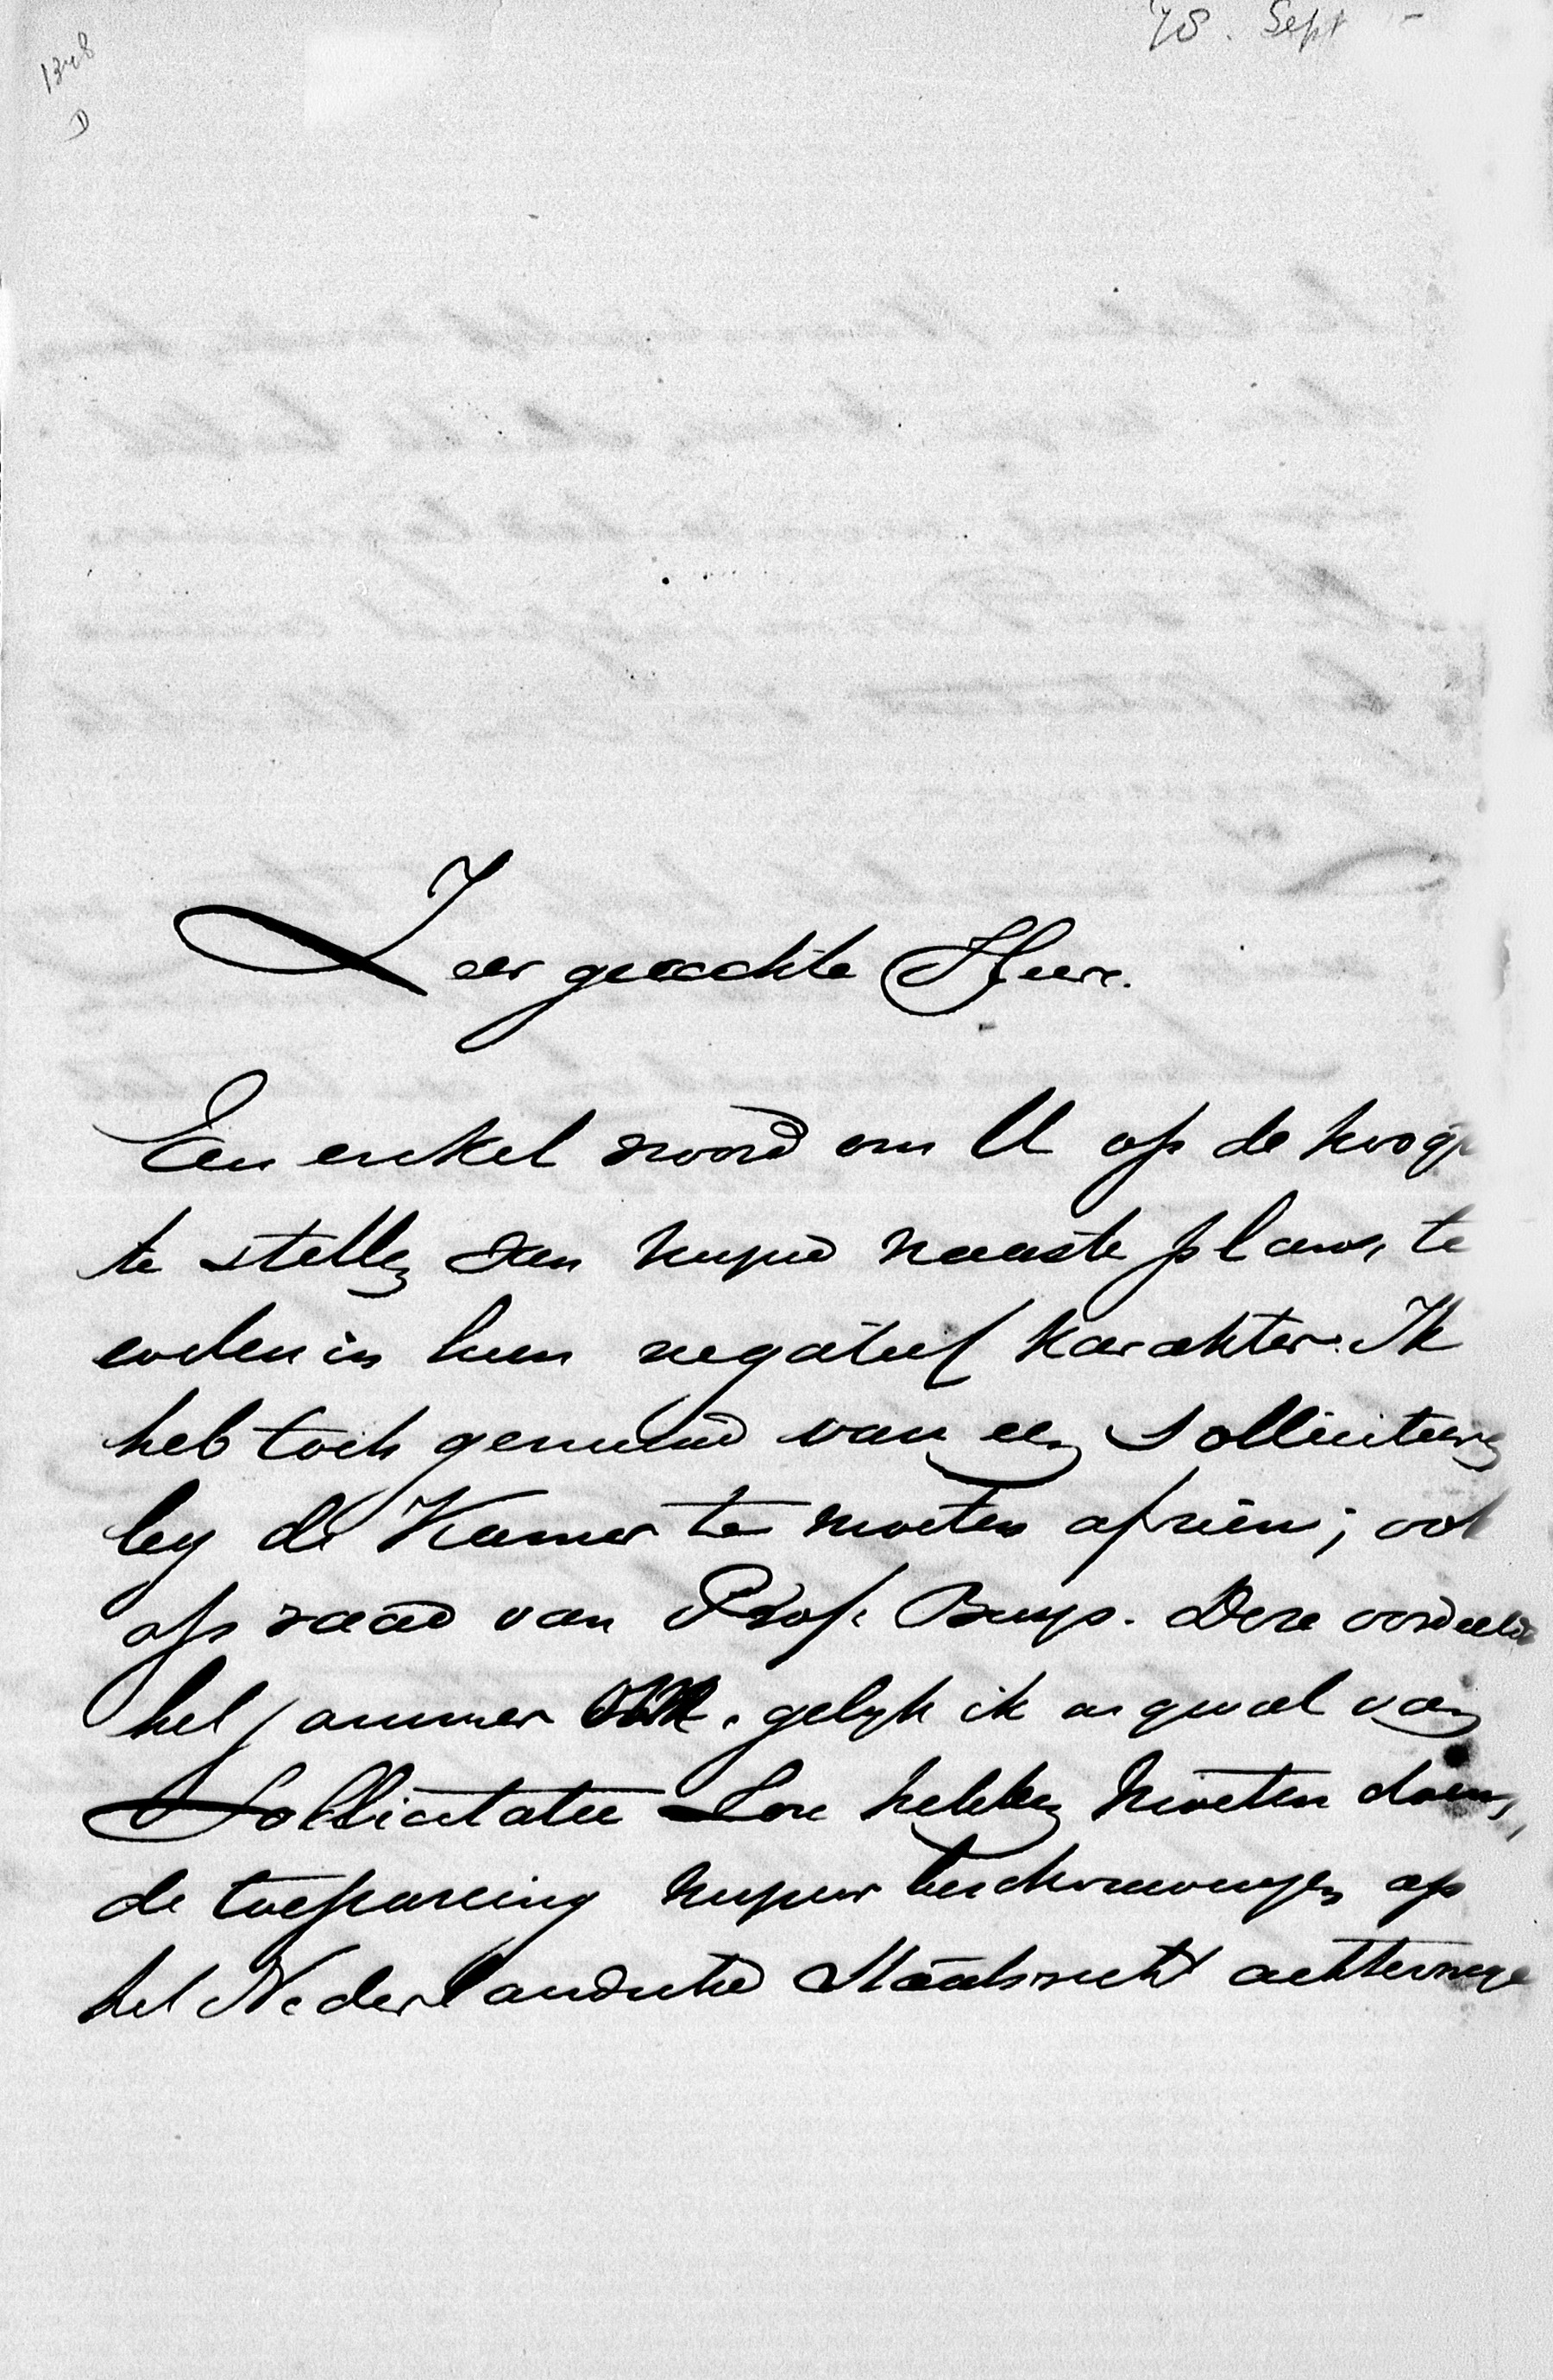 1348
D
78. Sept
Zeer geachte Heer.
Een enkel woord om U op de hoogte
te stellen van mijne naaste plans, te
in hun negatief karakter. Ik
heb toch gemeend van een solliciteeren
by de Kamer te moeten afzien; ook
op raad van Prof. Buys. Deze oordeelde
het jammer gelyk ik in geval van
Sollicitatie zou hebben moeten doen,
de toepassing mijner beschouwingen op
het Nederlandsche Staatsrecht achterwege